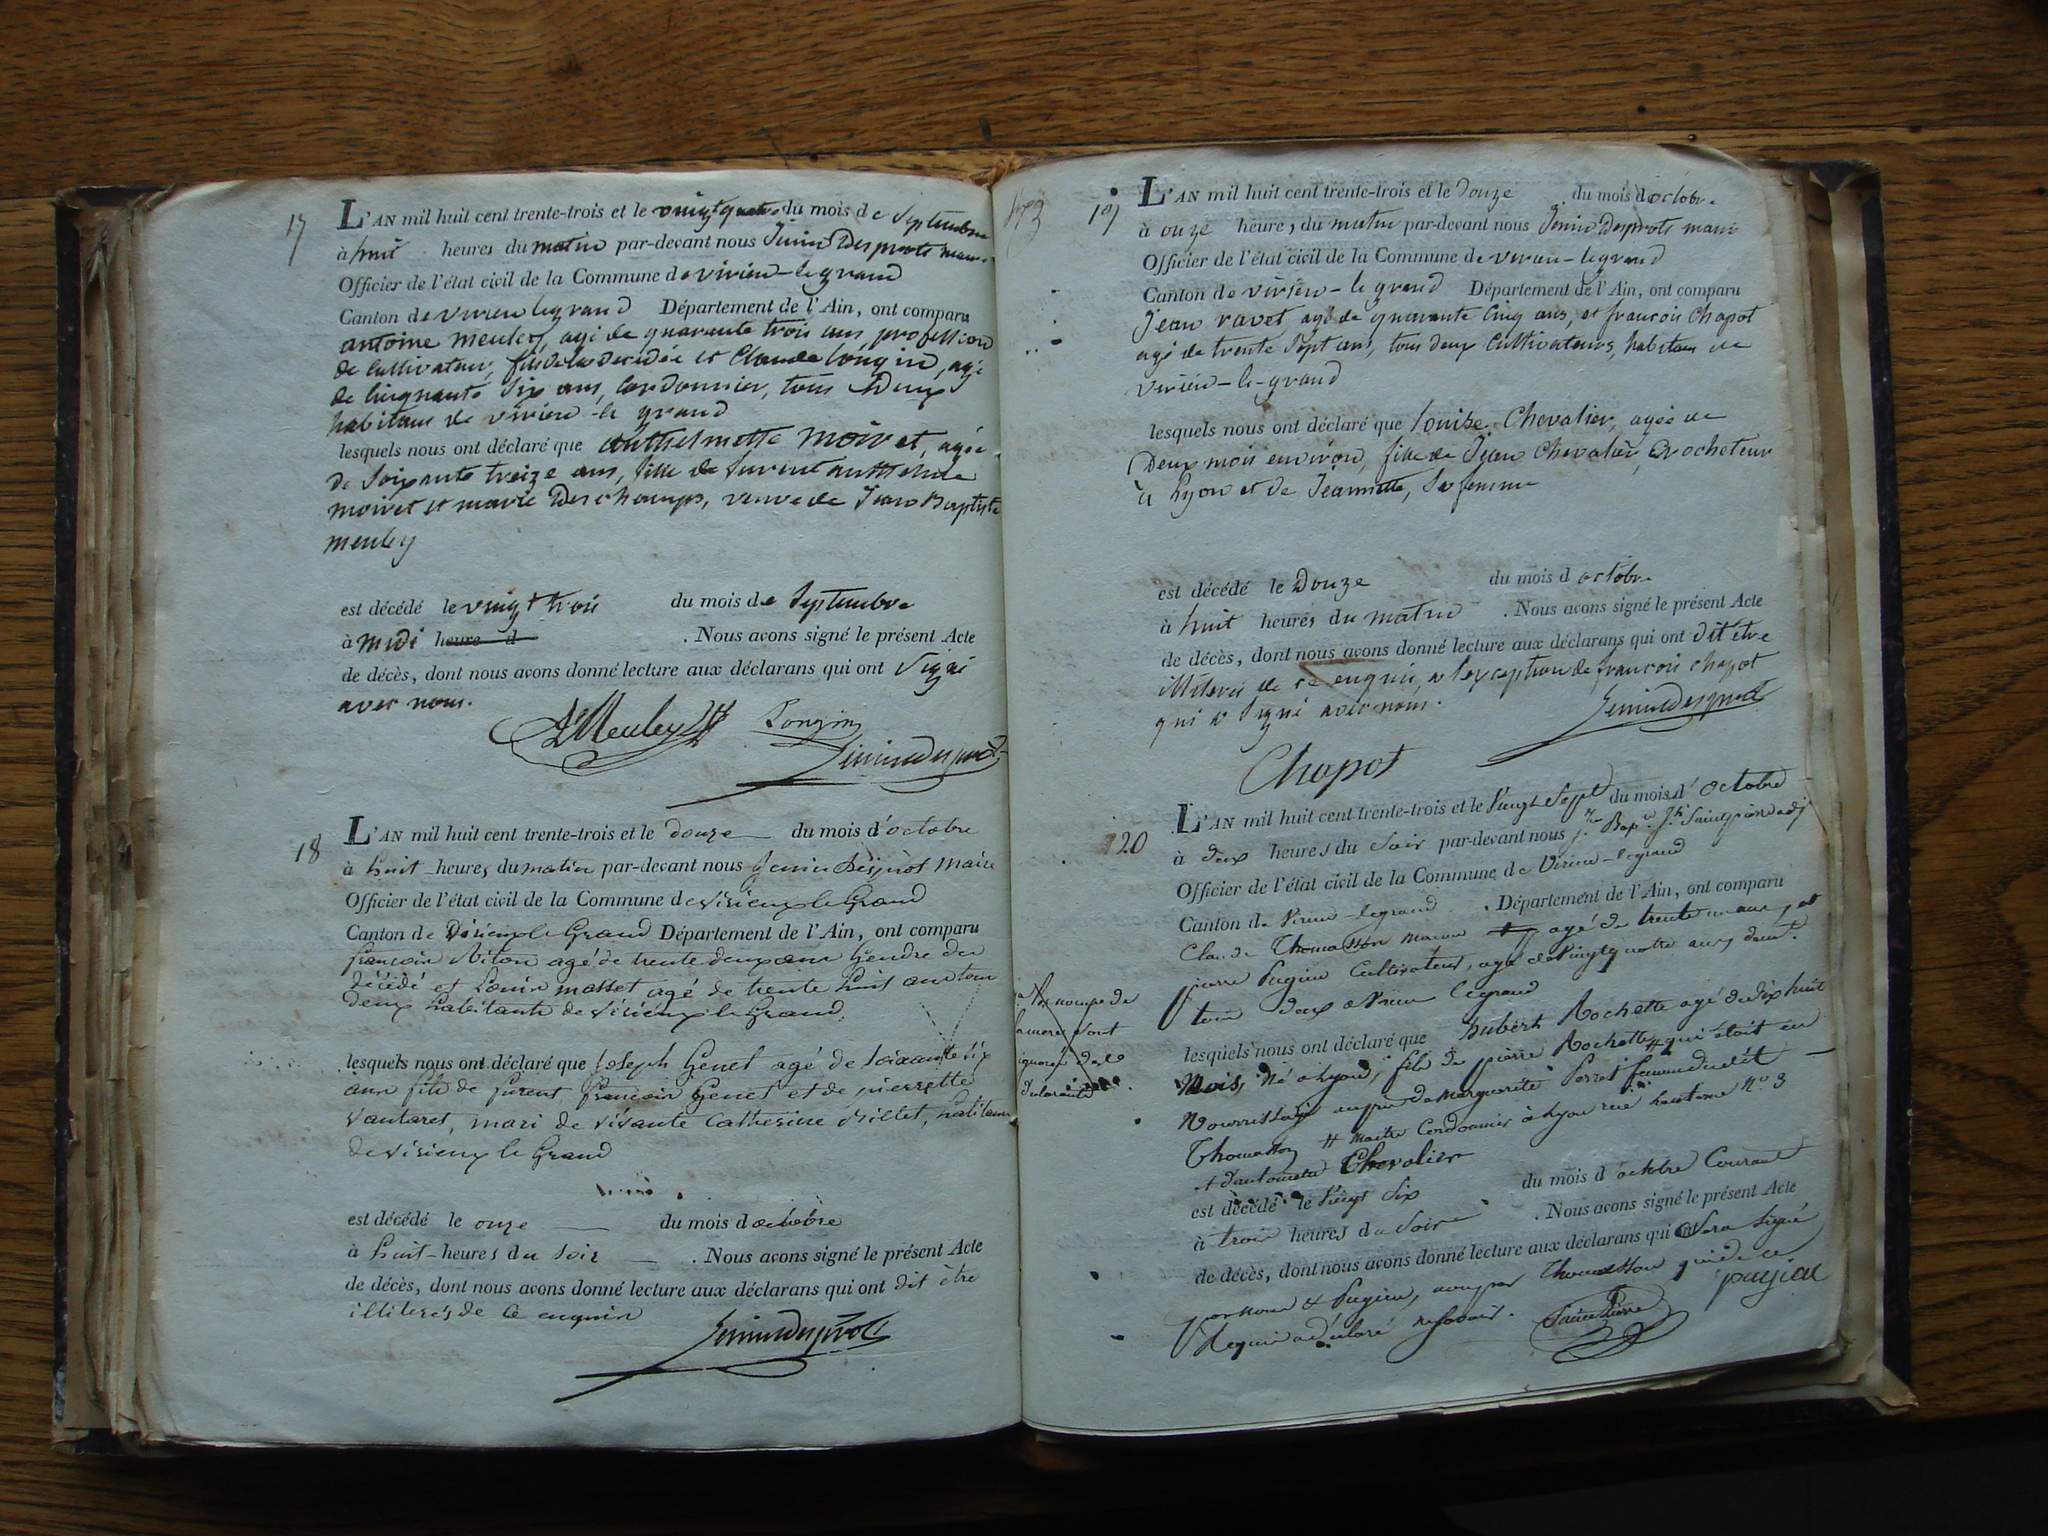 17
L'AN mil huit cent trente-trois et le vingt quatre du mois de Septembre
à huit heures du matin par-devant nous Jenin Desprots maire
Officier de l'état civil de la Commune de virieu-le grand
Canton de virieu le grand Département de l'Ain, ont comparu
antoine meuley, agé de quarante trois ans, profession
de cultivateur, fils de la décédée et Claude Longin, agé
de cinquante six ans, cordonnier, tous deux
habitans de virieu-le grand
lesquels nous ont déclaré que anthelmette moiret, agée
de soixante treize ans, fille de furent anthelme
moiret et marie Deschamps, veuve de Jean Baptiste
meuley
est décédé le vingt trois du mois de Septembre
à midi heure d . Nous avons signé le présent Acte
de décès, dont nous avons donné lecture aux déclarans qui ont signé
avec nous.
Meuley Longin
Jenin desprots
18
L'AN mil huit cent trente-trois et le douze du mois d'octobre
à huit heures du matin par-devant nous Jenin Desprot Maire
Officier de l'état civil de la Commune de Virieux le Grand
Canton de Virieux le Grand Département de l'Ain, ont comparu
françois agé de trente deux ans Gendre du
décédé et Louis masset agé de trente huit ans tous
deux habitants de Virieux le Grand
lesquels nous ont déclaré que Joseph Genet agé de soixante six
ans fils de furent françois Genet et de pierrette
Vantaret, mari de vivante Catherine Billet, habitans
de Virieux le Grand
est décédé le onze du mois d octobre
à huit heures du soir . Nous avons signé le présent Acte
de décès, dont nous avons donné lecture aux déclarans qui ont dit être
illiterés de ce enquis
Jenin desprots
173
19
L'AN mil huit cent trente-trois et le douze du mois d octobre
à onze heures du matin par-devant nous Jenin Desprots maire
Officier de l'état civil de la Commune de virieu-le grand
Canton de virieu-le grand Département de l'Ain, ont comparu
jean ravet agé de quarante cinq ans, et francois Chapot
agé de trente sept ans, tous deux cultivateurs, habitans de
virieu-le-grand
lesquels nous ont déclaré que Louise Chevalier, agée de
Deux mois environ, fille de Jean Chevalier, Crocheteur
à Lyon et de Jeannette, sa femme
est décédé le Douze du mois d octobre
à huit heures du matin . Nous avons signé le présent Acte
de décès, dont nous avons donné lecture aux déclarans qui ont dit être
illiterés de ce enquis, a l'exception de francois chapot
qui a signé avec nous.
Jenin desprots
Chapot
120
L'AN mil huit cent trente-trois et le Vingt Sept du mois d'octobre
à deux heures du soir par-devant nous
Officier de l'état civil de la Commune de Virieu-legrand
Canton de Virieu-legrand . Département de l'Ain, ont comparu
Claude Thomasson agé de trente ans, et
pierre Pugieu Cultivateur, agé de Vingt quatre ans, demt.
tous deux a Virieu legrand
lesquels nous ont déclaré que hubert Rochette agé de dix huit
Mois, Né a Lyon, fils de pierre Rochette # qui étoit en
Nourrissage auprès de Marguerite Perret femme du dit
Thomasson # Maitre Cordonnier à Lyon rue No. 3
et d'antoinette Chevalier
a les noms de
la mere sont
ignorés de
est décédé le Vingt Six du mois d'octobre Courant
à trois heures du soir . Nous avons signé le présent Acte
de décès, dont nous avons donné lecture aux déclarans qui sera signé
par nous & Pugieu, non par Thomasson qui de ce
requis a déclaré ne savoir. pugieu